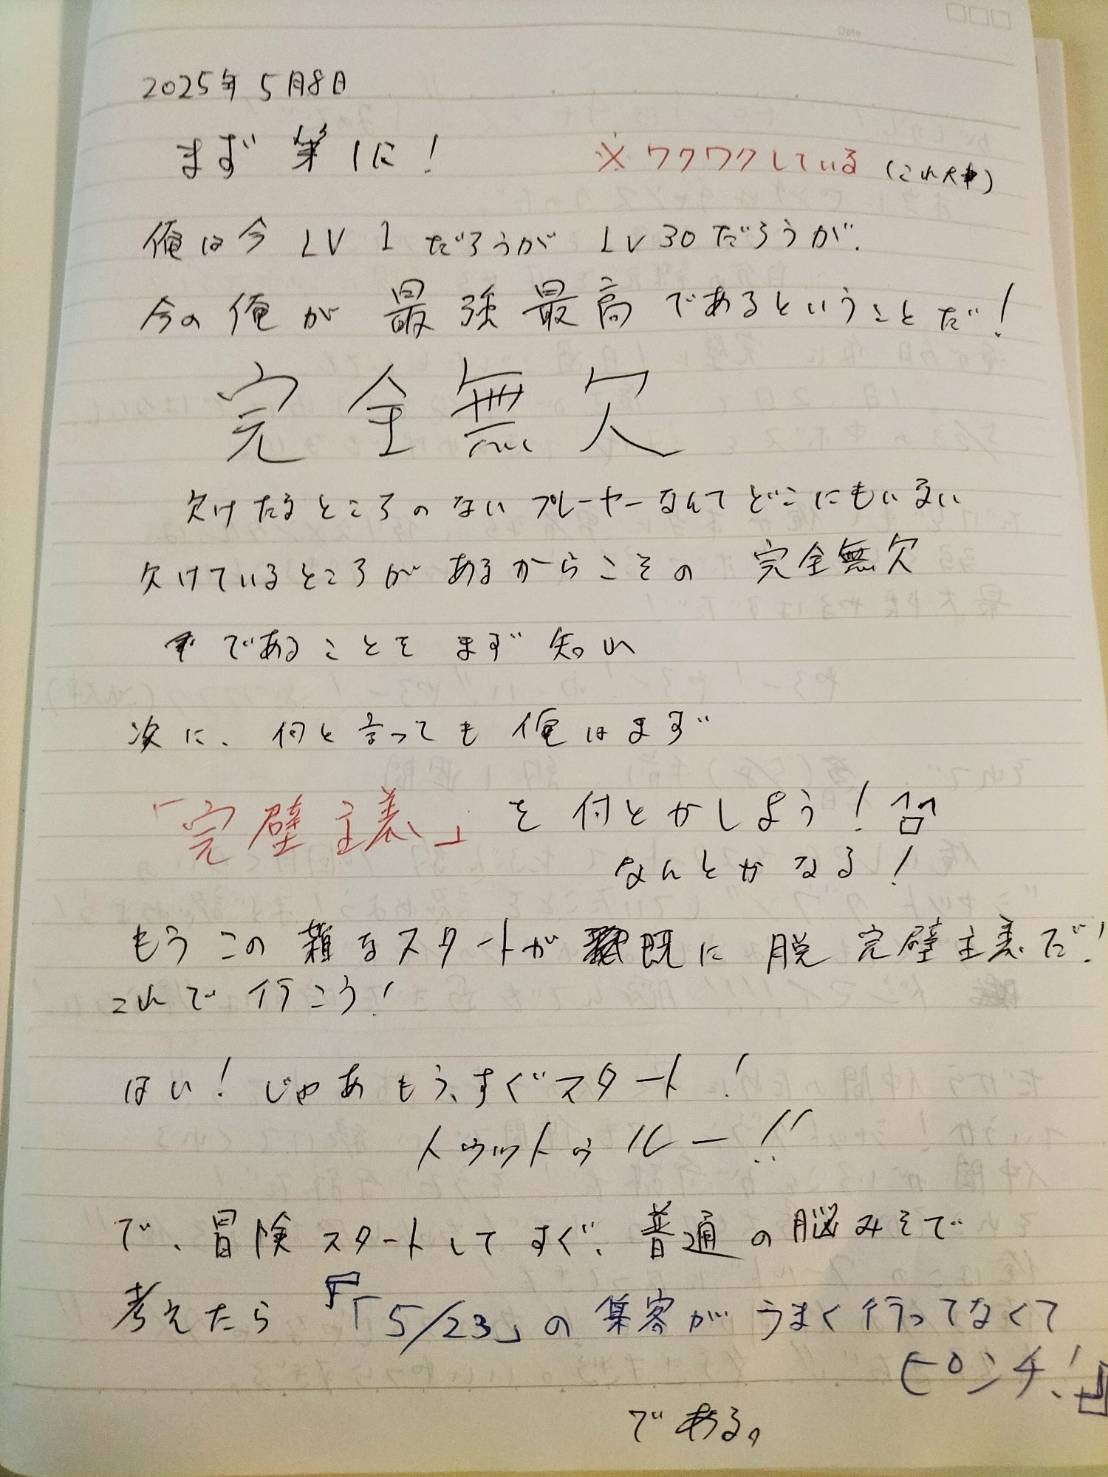 Date
2025年5月8日
まず第1に!
※ワクワクしている (これ大事)
俺は今 LV 1 だろうが LV30だろうが、
今の俺が 最強最高であるということだ!
完全無欠
欠けたるところのないプレーヤーなんてどこにもいない
欠けているところがあるからこその 完全無欠
であることをまず知れ
次に、何と言っても俺はまず
「完璧主義」を何とかしよう!
なんとかなる!
もうこの雑なスタートが既に脱完璧主義だ!
これで行こう!
はい!じゃあもう、すぐスタート!
トゥットゥルー!!
で、冒険スタートしてすぐ、普通の脳みそで
考えたら『「5/23」の集客がうまく行ってなくて
ピンチ!』
である。